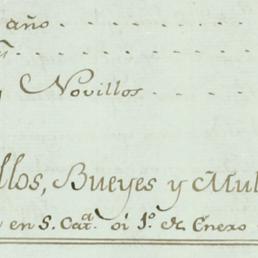 año
y Novillos
llos, Bueyes y Mul
en S. Cat.ª oi 1.º de Enero